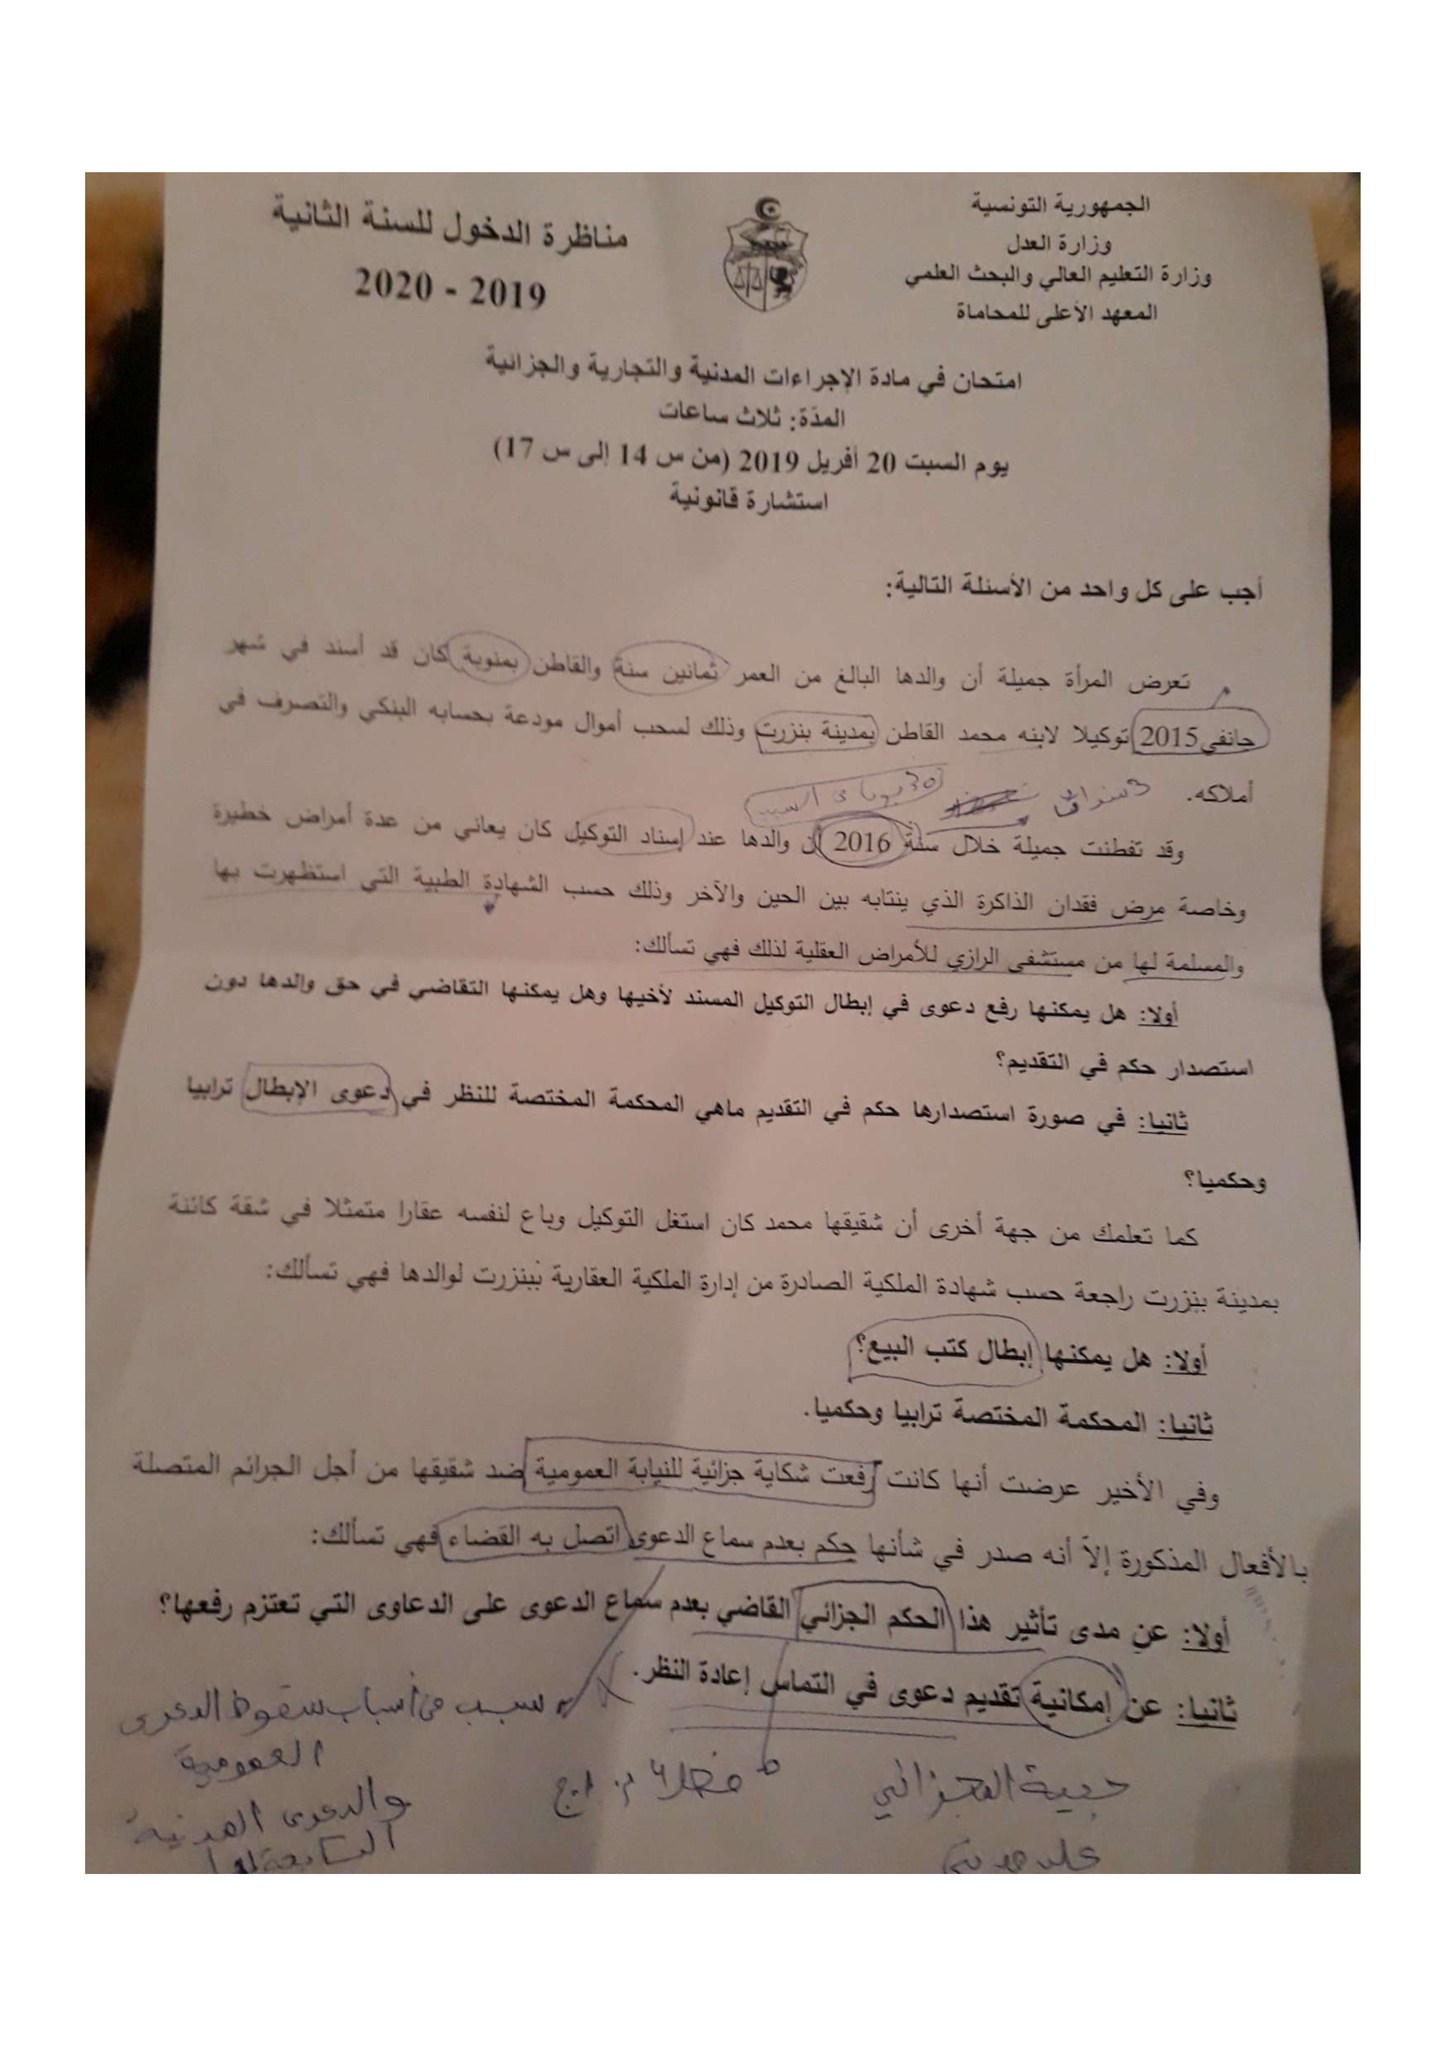 الجمهورية التونسية
وزارة العدل
وزارة التعليم العالي والبحث العلمي
المعهد الأعلى للمحاماة
مناظرة الدخول للسنة الثانية
2019 - 2020
امتحان في مادة الإجراءات المدنية والتجارية والجزائية
المدّة: ثلاث ساعات
يوم السبت 20 أفريل 2019 (من س 14 إلى س 17)
استشارة قانونية
أجب على كل واحد من الأسئلة التالية:
تعرض المرأة جميلة أن والدها البالغ من العمر ثمانين سنة والقاطن بمنوبة كان قد أسند في شهر
جانفي 2015 توكيلا لابنه محمد القاطن بمدينة بنزرت وذلك لسحب أموال مودعة بحسابه البنكي والتصرف في
أملاكه.
وقد تفطنت جميلة خلال سنة 2016 أن والدها عند إسناد التوكيل كان يعاني من عدة أمراض خطيرة
وخاصة مرض فقدان الذاكرة الذي ينتابه بين الحين والآخر وذلك حسب الشهادة الطبية التي استظهرت بها
والمسلمة لها من مستشفى الرازي للأمراض العقلية لذلك فهي تسألك:
أولا: هل يمكنها رفع دعوى في إبطال التوكيل المسند لأخيها وهل يمكنها التقاضي في حق والدها دون
استصدار حكم في التقديم؟
ثانيا: في صورة استصدارها حكم في التقديم ماهي المحكمة المختصة للنظر في دعوى الإبطال ترابيا
وحكميا؟
كما تعلمك من جهة أخرى أن شقيقها محمد كان استغل التوكيل وباع لنفسه عقارا متمثلا في شقة كائنة
بمدينة بنزرت راجعة حسب شهادة الملكية الصادرة من إدارة الملكية العقارية ببنزرت لوالدها فهي تسألك:
أولا: هل يمكنها إبطال كتب البيع؟
ثانيا: المحكمة المختصة ترابيا وحكميا.
وفي الأخير عرضت أنها كانت رفعت شكاية جزائية للنيابة العمومية ضد شقيقها من أجل الجرائم المتصلة
بالأفعال المذكورة إلاّ أنه صدر في شأنها حكم بعدم سماع الدعوى اتصل به القضاء فهي تسألك:
أولا: عن مدى تأثير هذا الحكم الجزائي القاضي بعدم سماع الدعوى على الدعاوى التي تعتزم رفعها؟
ثانيا: عن إمكانية تقديم دعوى في التماس إعادة النظر.
سبب من أسباب سقوط الدعوى
العمومية
والدعوى المدنية